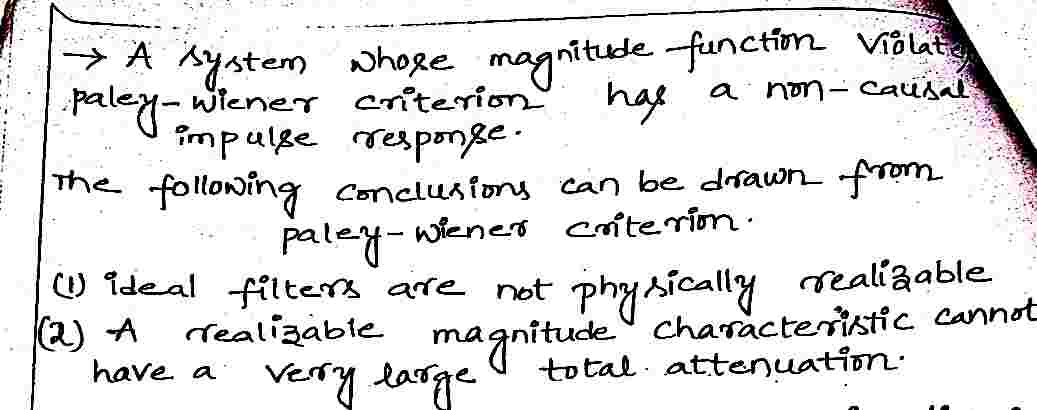 → A system whose magnitude function violates
paley-wiener criterion has a non-causal
impulse response.
The following conclusions can be drawn from
paley-wiener criterion.
(1) ideal filters are not physically realizable
(2) A realizable magnitude characteristic cannot
have a very large total attenuation.